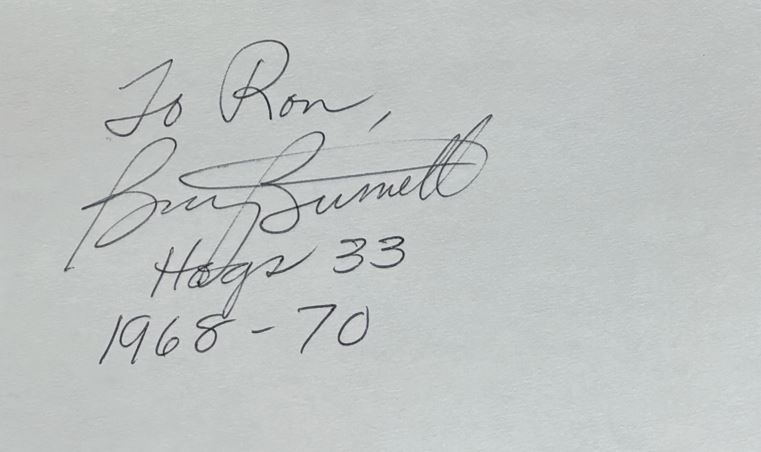 To Ron,
Bill Burnett
Hogs 33
1968-70